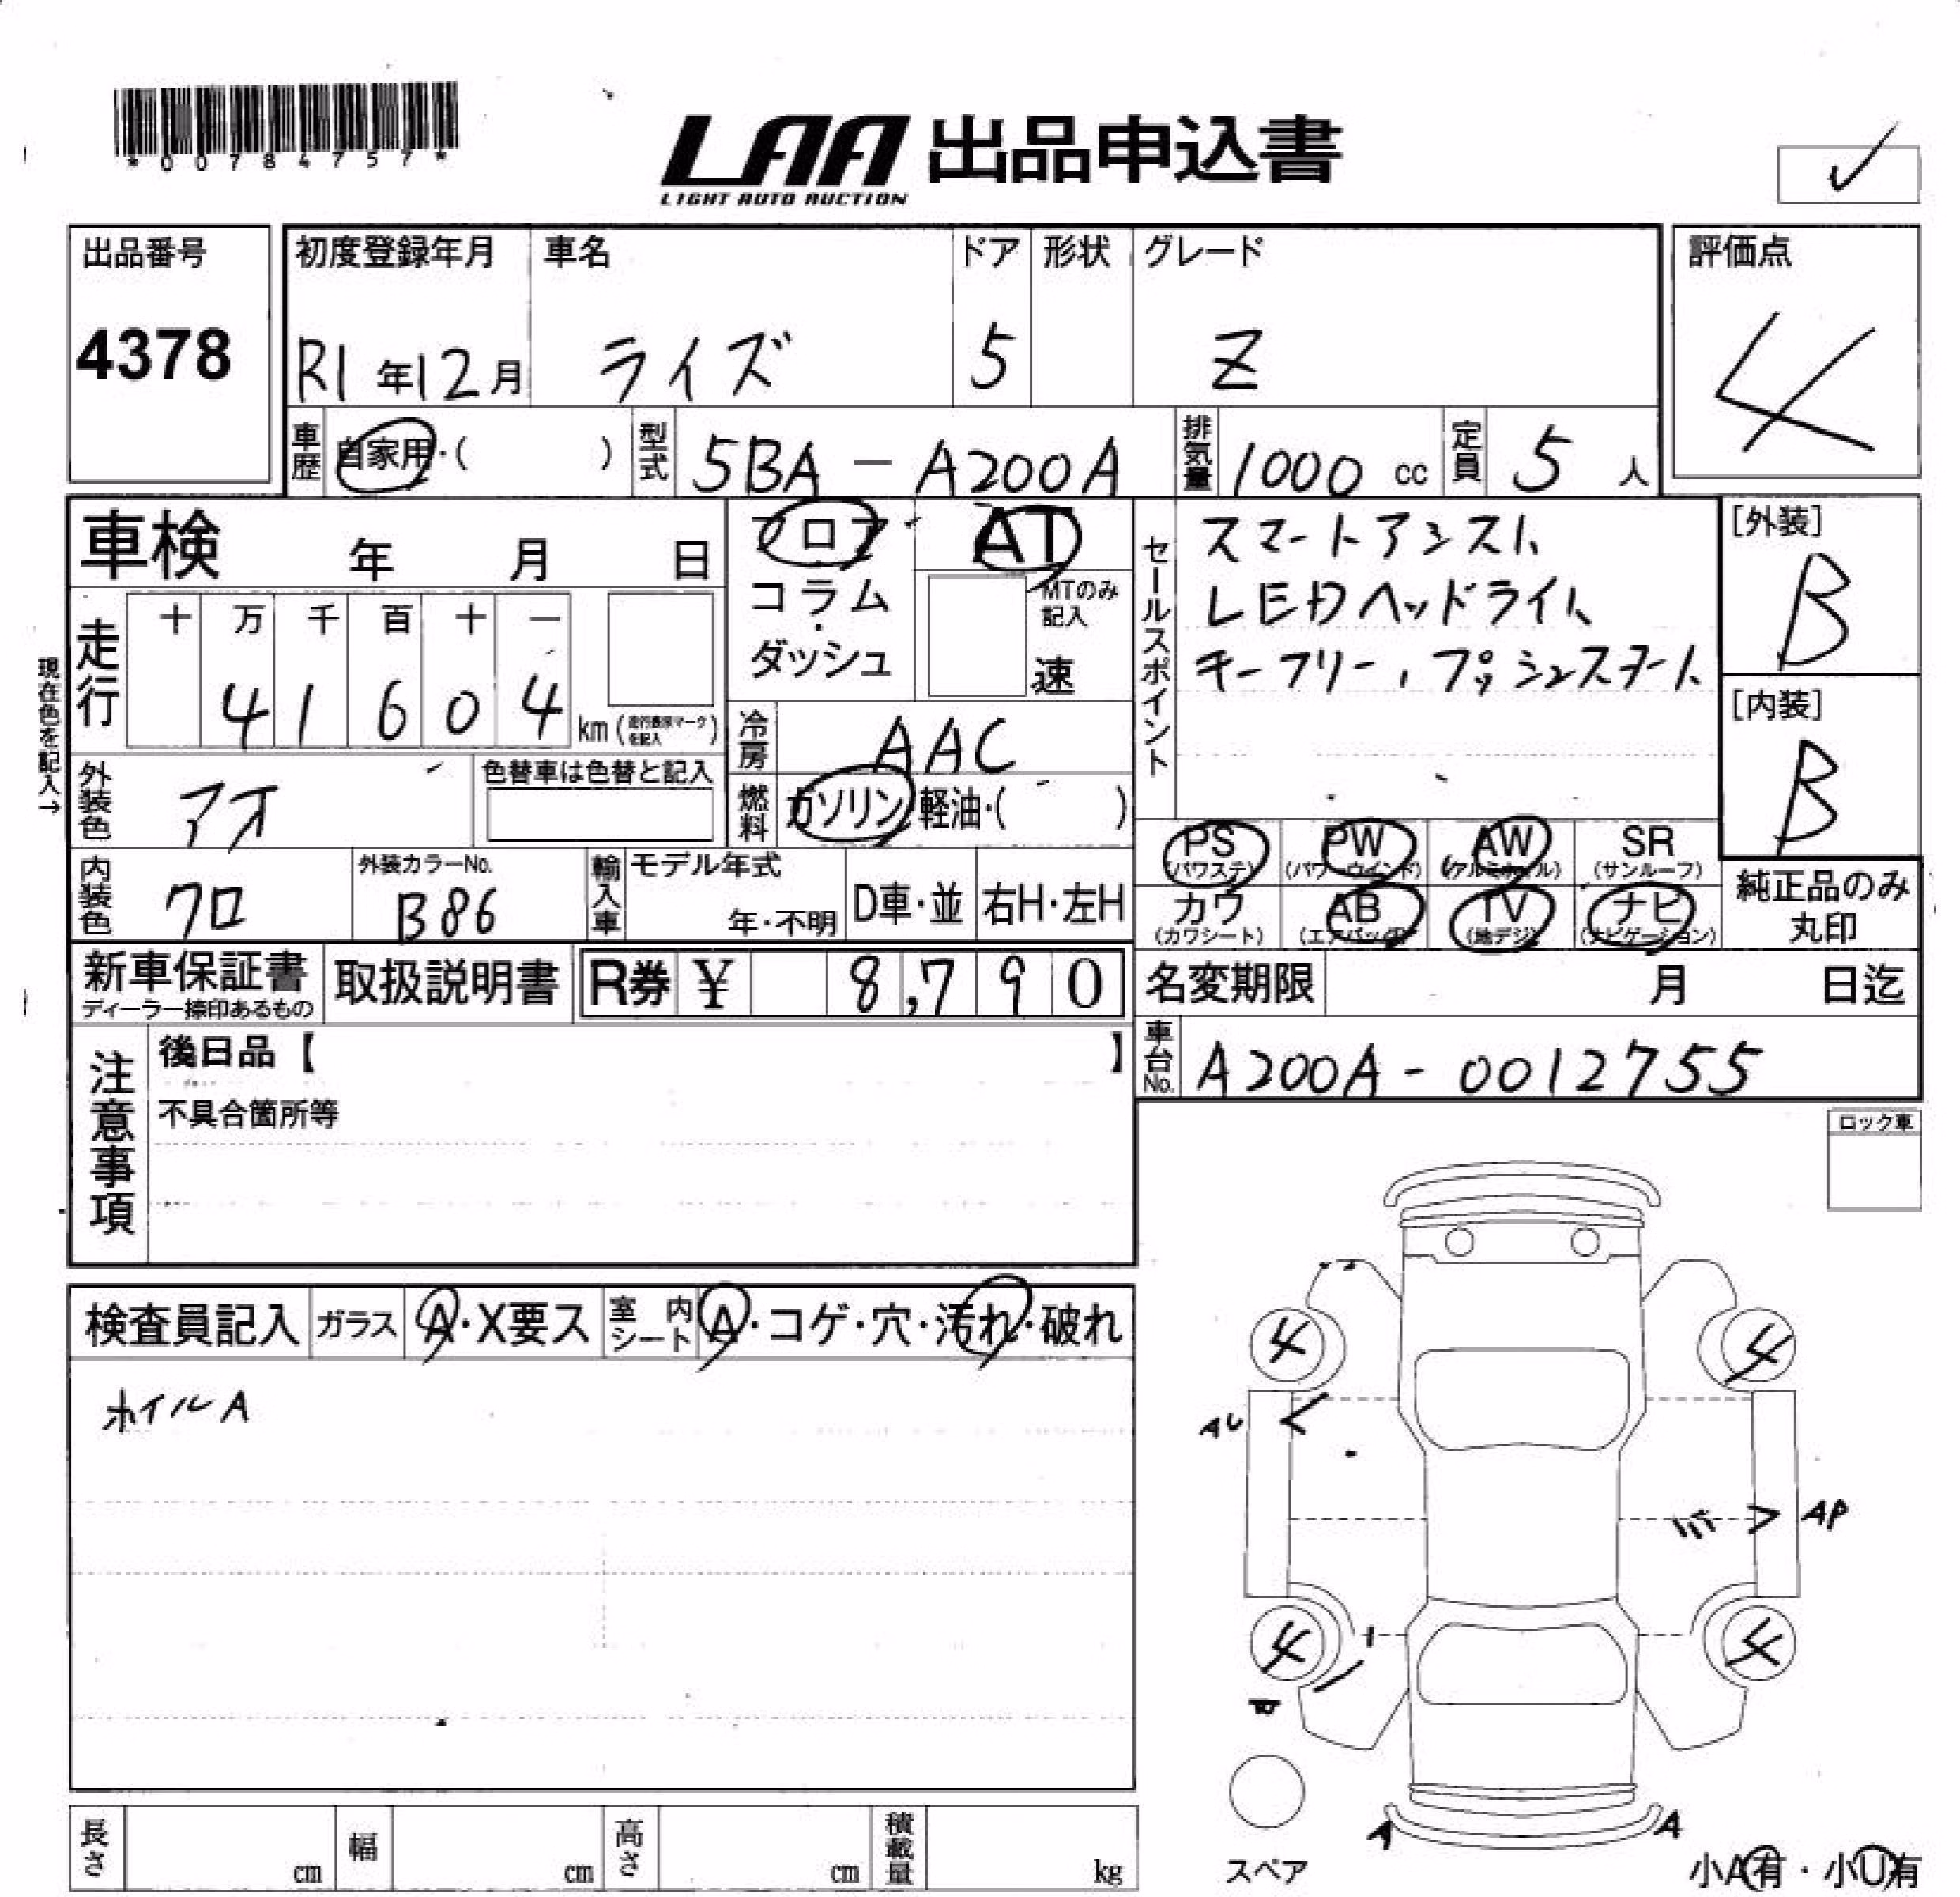 *00784757*
LAA 出品申込書
LIGHT AUTO AUCTION
出品番号
4378
初度登録年月
R1年12月
車名
ライズ
ドア
5
形状
グレード
Z
評価点
4
車歴
自家用・( )
型式
5BA-A200A
排気量
1000 cc
定員
5 人
車検 年 月 日
フロア
コラム
ダッシュ
AT
MTのみ記入
速
セールスポイント
スマートアシスト
LEDヘッドライト
キーフリー,プッシュスタート
[外装]
B
[内装]
B
現在色を記入→
走行
十 万 千 百 十 一
4 1 6 0 4
km (走行表示マークを記入)
冷房
AAC
外装色
アオ
色替車は色替と記入
燃料
ガソリン・軽油・( )
内装色
クロ
外装カラーNo.
B86
輸入車
モデル年式
年・不明
D車・並
右H・左H
PS (パワステ)
PW (パワーウインド)
AW (アルミホイル)
SR (サンルーフ)
カワ (カワシート)
AB (エアバッグ)
TV (地デジ)
ナビ (ナビゲーション)
純正品のみ丸印
新車保証書
ディーラー捺印あるもの
取扱説明書
R券 ¥ 8,790
名変期限 月 日迄
車台No.
A200A-0012755
注意事項
後日品【 】
不具合箇所等
ロック車
検査員記入
ガラス
A・X要ス
室内シート
A・コゲ・穴・汚れ・破れ
ホイルA
4
4
AU
AP
4
4
A
A
スペア
小A有・小U有
長さ cm
幅 cm
高さ cm
積載量 kg